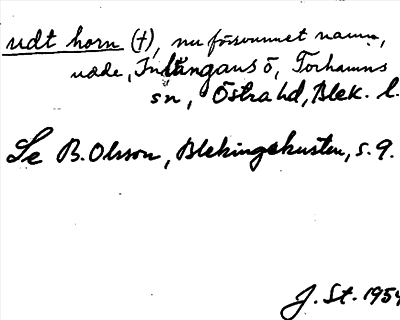 udt horn (†), nu försvunnet namn,
udde, Inlängans ö, Torhamns
sn, Östra hd, Blek. l.
Se B. Olsson, Blekingekusten, s. 9.
J. St. 1954